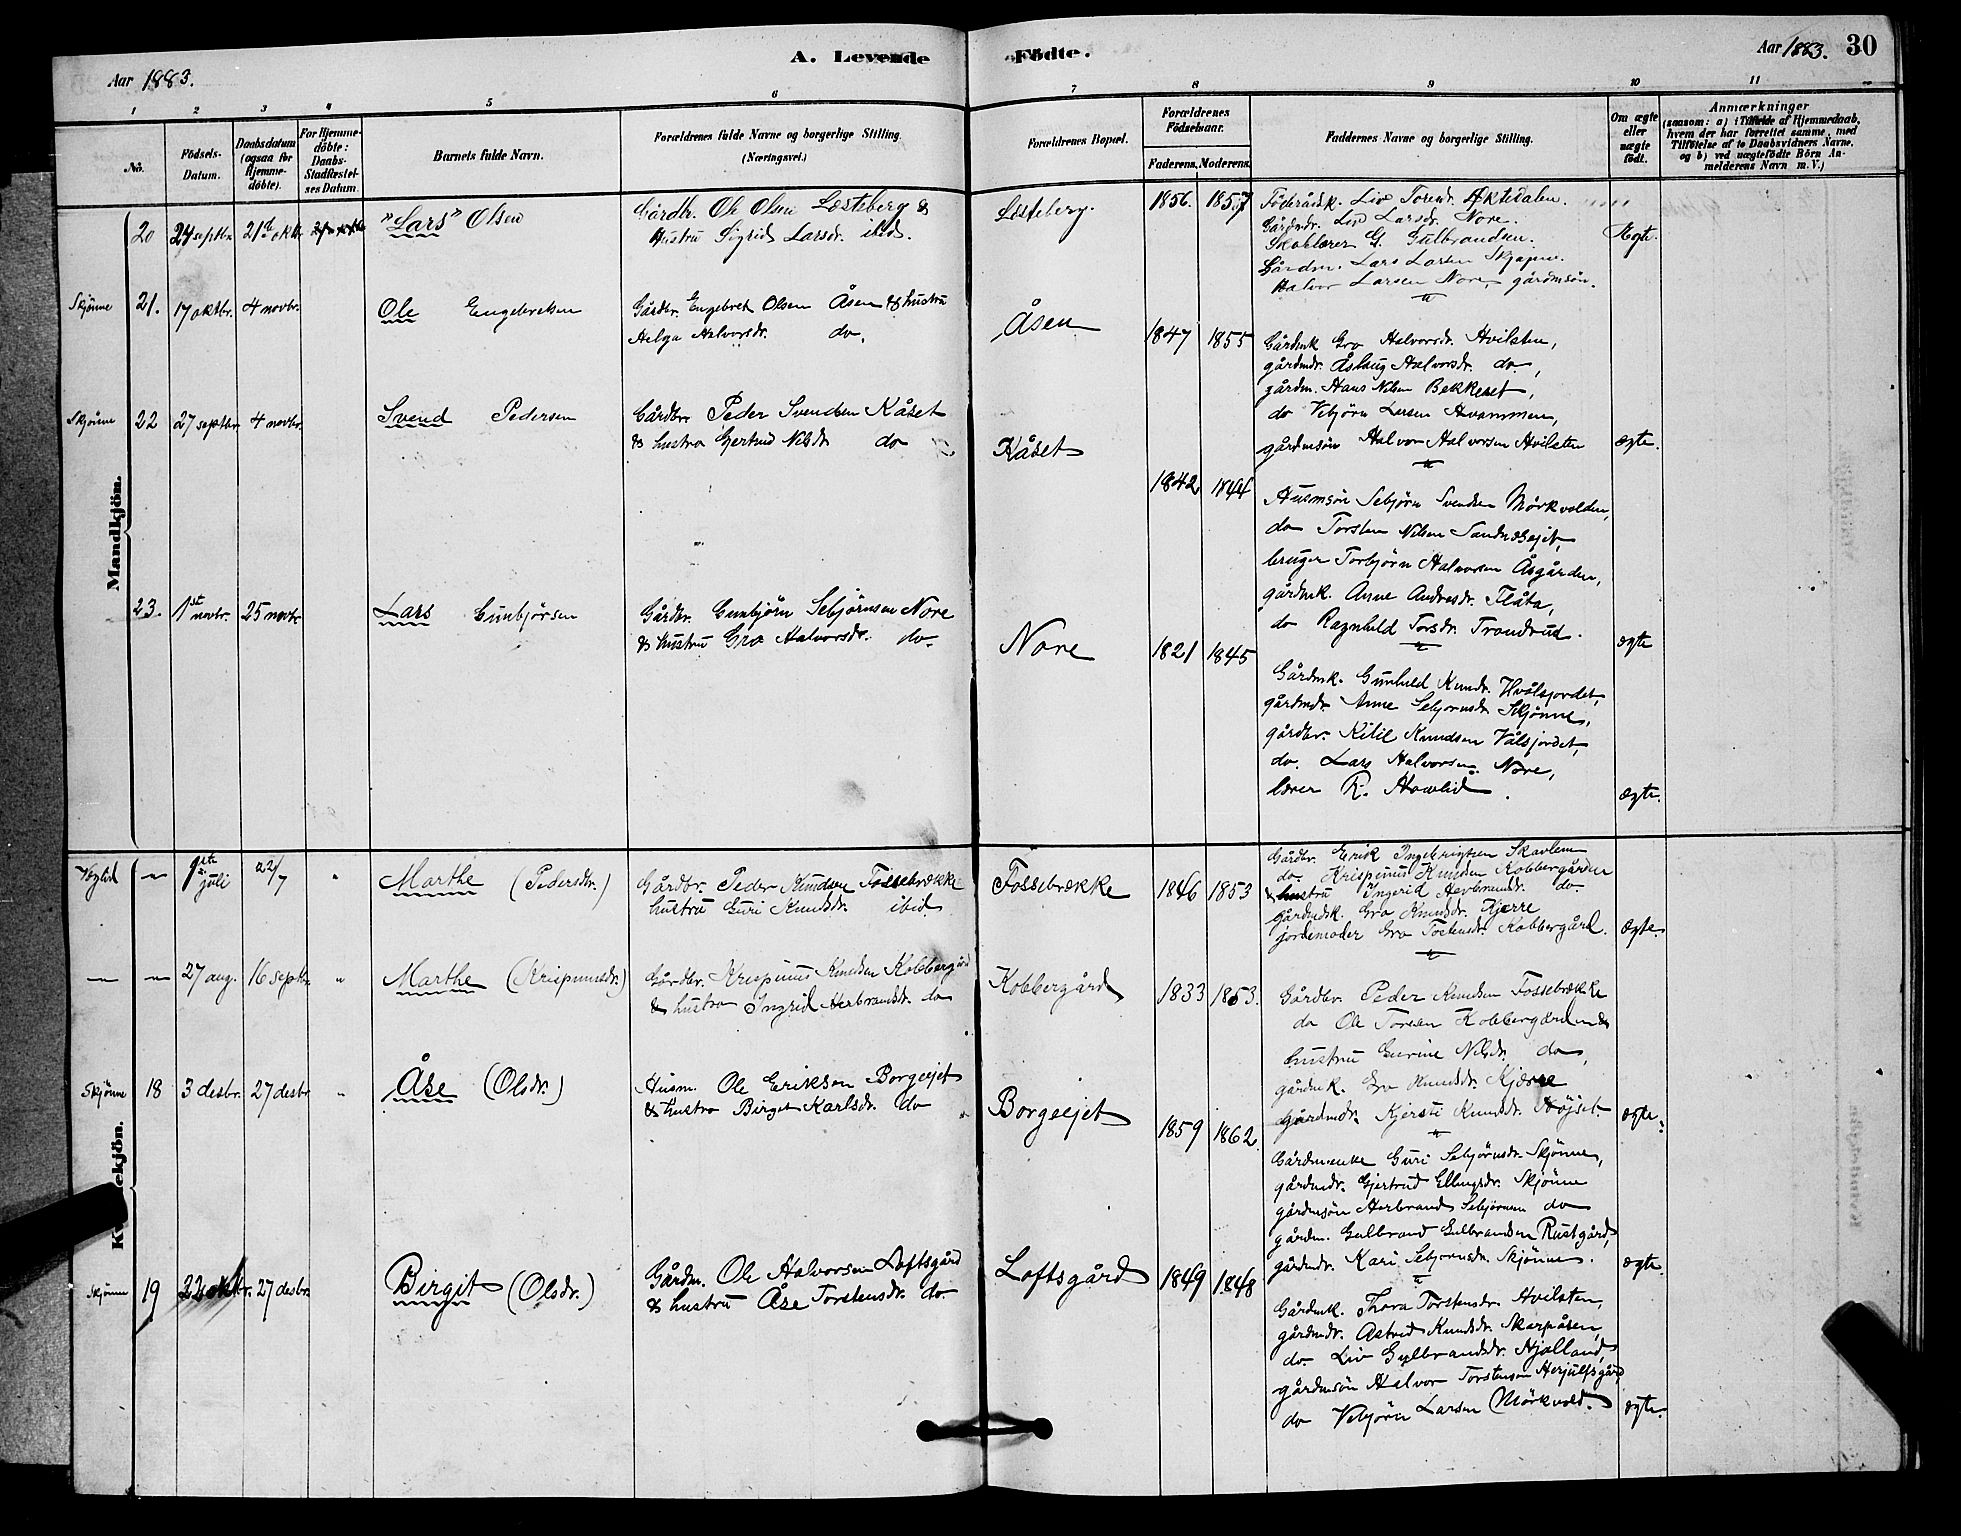 Aar 1883.
A. Levende
Fødte.
Aar 1883.
30
1
2
3
4
5
6
7
8
9
10
11
No.
Födsels-
Datum.
Daabsdatum
(ogsaa for
Hjemme-
döbte).
For Hjemme-
döbte:
Daabs-
Stadfæstel-
ses Datum.
Barnets fulde Navn.
Forældrenes fulde Navne og borgerlige Stilling.
(Næringsvei.)
Forældrenes Bopæl.
Forældrenes
Födselsaar.
Faderens.
Moderens.
Faddernes Navne og borgerlige Stilling.
Om ægte
eller
uægte
födt.
Anmærkninger
(saasom: a) i Tilfælde af Hjemmedaab,
hvem der har forrettet samme, med
Tilföielse af to Daabsvidners Navne,
og b) ved uægtefödte Börn An-
melderens Navn m.V.)
Mandkjön.
20
24 septbr.
21de oktb.
"Lars" Olsen
Gårdbr. Ole Olsen Læsteberg &
hustru Sigrid Larsdr. ibid.
Læsteberg.
1856.
1857
Föderådsk. Liv Torendr. Øktedalen.
Gårdmdr. Liv Larsdr. Nore.
Skolelærer G. Gulbrandsen.
Gårdm. Lars Larsen Skjøpne.
Halvor Larsen Nore, gårdmsön.
Ægte.
Skjønne
21.
17 oktbr.
4 novbr.
Ole Engebretsen
Gårdbr. Engebret Olsen Åsen & hustru
Helga Halvorsdr. do.
Åsen
1847
1855
Gårdmk Gro Halvorsdr. Hvilsten,
gårdmdr. Åslaug Halvorsdr. do,
gårdm. Hans Nilsen Bekkeset,
do Vebjörn Larsen Hvammen,
gårdmsön Halvor Halvorsen Hvilsten
ægte.
Skjønne
22
27 septbr.
4 novbr.
Svend Pedersen
Gårdbr. Peder Svendsen Kåset
& hustru Gjertrud Nilsdr. do
Kåset
1842
1844
Husmsön Sebjørn Svendsen Mörkvolden,
do Torsten Nilsen Sandneseiet,
bruger Torbjörn Halvorsen Åsgården,
gårdmk. Anne Andresdr. Flåta,
do Ragnhild Torsdr. Trondrud.
ægte
23.
1st novbr.
25 novbr.
Lars Gunbjörsen
Gårdbr. Gunbjörn Sebjörnsen Nore
& hustru Gro Halvorsdr. do
Nore
1821
1845
Gårdmk. Gunhild Knudr. Hvålsjordet,
gårdmdr. Anne Sebjornsdr. Skjönne,
gårdbr. Kitil Knudsen Vålsjordet,
do. Lars Halvorsen Nore,
lærer R. Howlid.
ægte.
Væglid
1ste juli
22/7
Marthe (Pedersdtr.)
Gårdbr. Peder Knudsen Fossebrække
hustru Guri Knudsdr. ibid.
Fossebrække
1846
1853
Gårdbr. Erik Ingebrigtsen Skavlem
do. Krispinus Knudsen Kobbergården
& hustru Ingerid Herbrandsdr. do
gårdmdsk. Gro Knudsdr. Kjærre
jordemoder Gro Tostensdr. Kobbergård.
Ægte.
27 aug.
16 septbr.
Marthe (Krispinusdr.)
Gårdbr. Krispinus Knudsen Kobbergård
& hustru Ingrid Herbrandsdr. do
Kobbergård
1833
1853.
Gårdbr. Peder Knudsen Fossebrække
do Ole Toresen Kobbergården &
hustru Gurine Nilsdr. do,
gårdmk. Gro Knudsdr. Kjærre
gårdmdr. Kjersti Knudsdr. Höjset
ægte.
Skjønne
18
3 desbr.
27 desbr
Åse (Olsdr.)
Husm. Ole Eriksen Borgeejet
& hustru Birget Karlsdr. do
Borgeejet
1859
1862
Gårdmenke Guri Sebjørnsdr. Skjönne,
gårdmdr. Gjertrud Ellingsdr. Skjönne
gårdmsön Herbrand Sebjörnsen do
gårdm. Gulbrand Gulbrandsen Rustgård,
gårdmdr. Kari Sebjornsdr. Skjönne.
ægte.
Skjønne
19
22 oktbr.
27 desbr.
Birgit (Olsdr.)
Gårdm. Ole Halvorsen Loftsgård
& hustru Åse Torstensdr. do
Loftsgård
1849
1848
Gårdmk. Thora Torstensdr. Hvilsten,
gårdmdr. Astrid Knudsdr. Skarpåsen,
do Liv Gulbrandsdr. Hjalland,
gårdmsön Halvor Torstensen Herjulfsgård,
do Vebjörn Larsen Mörkvold.
ægte.